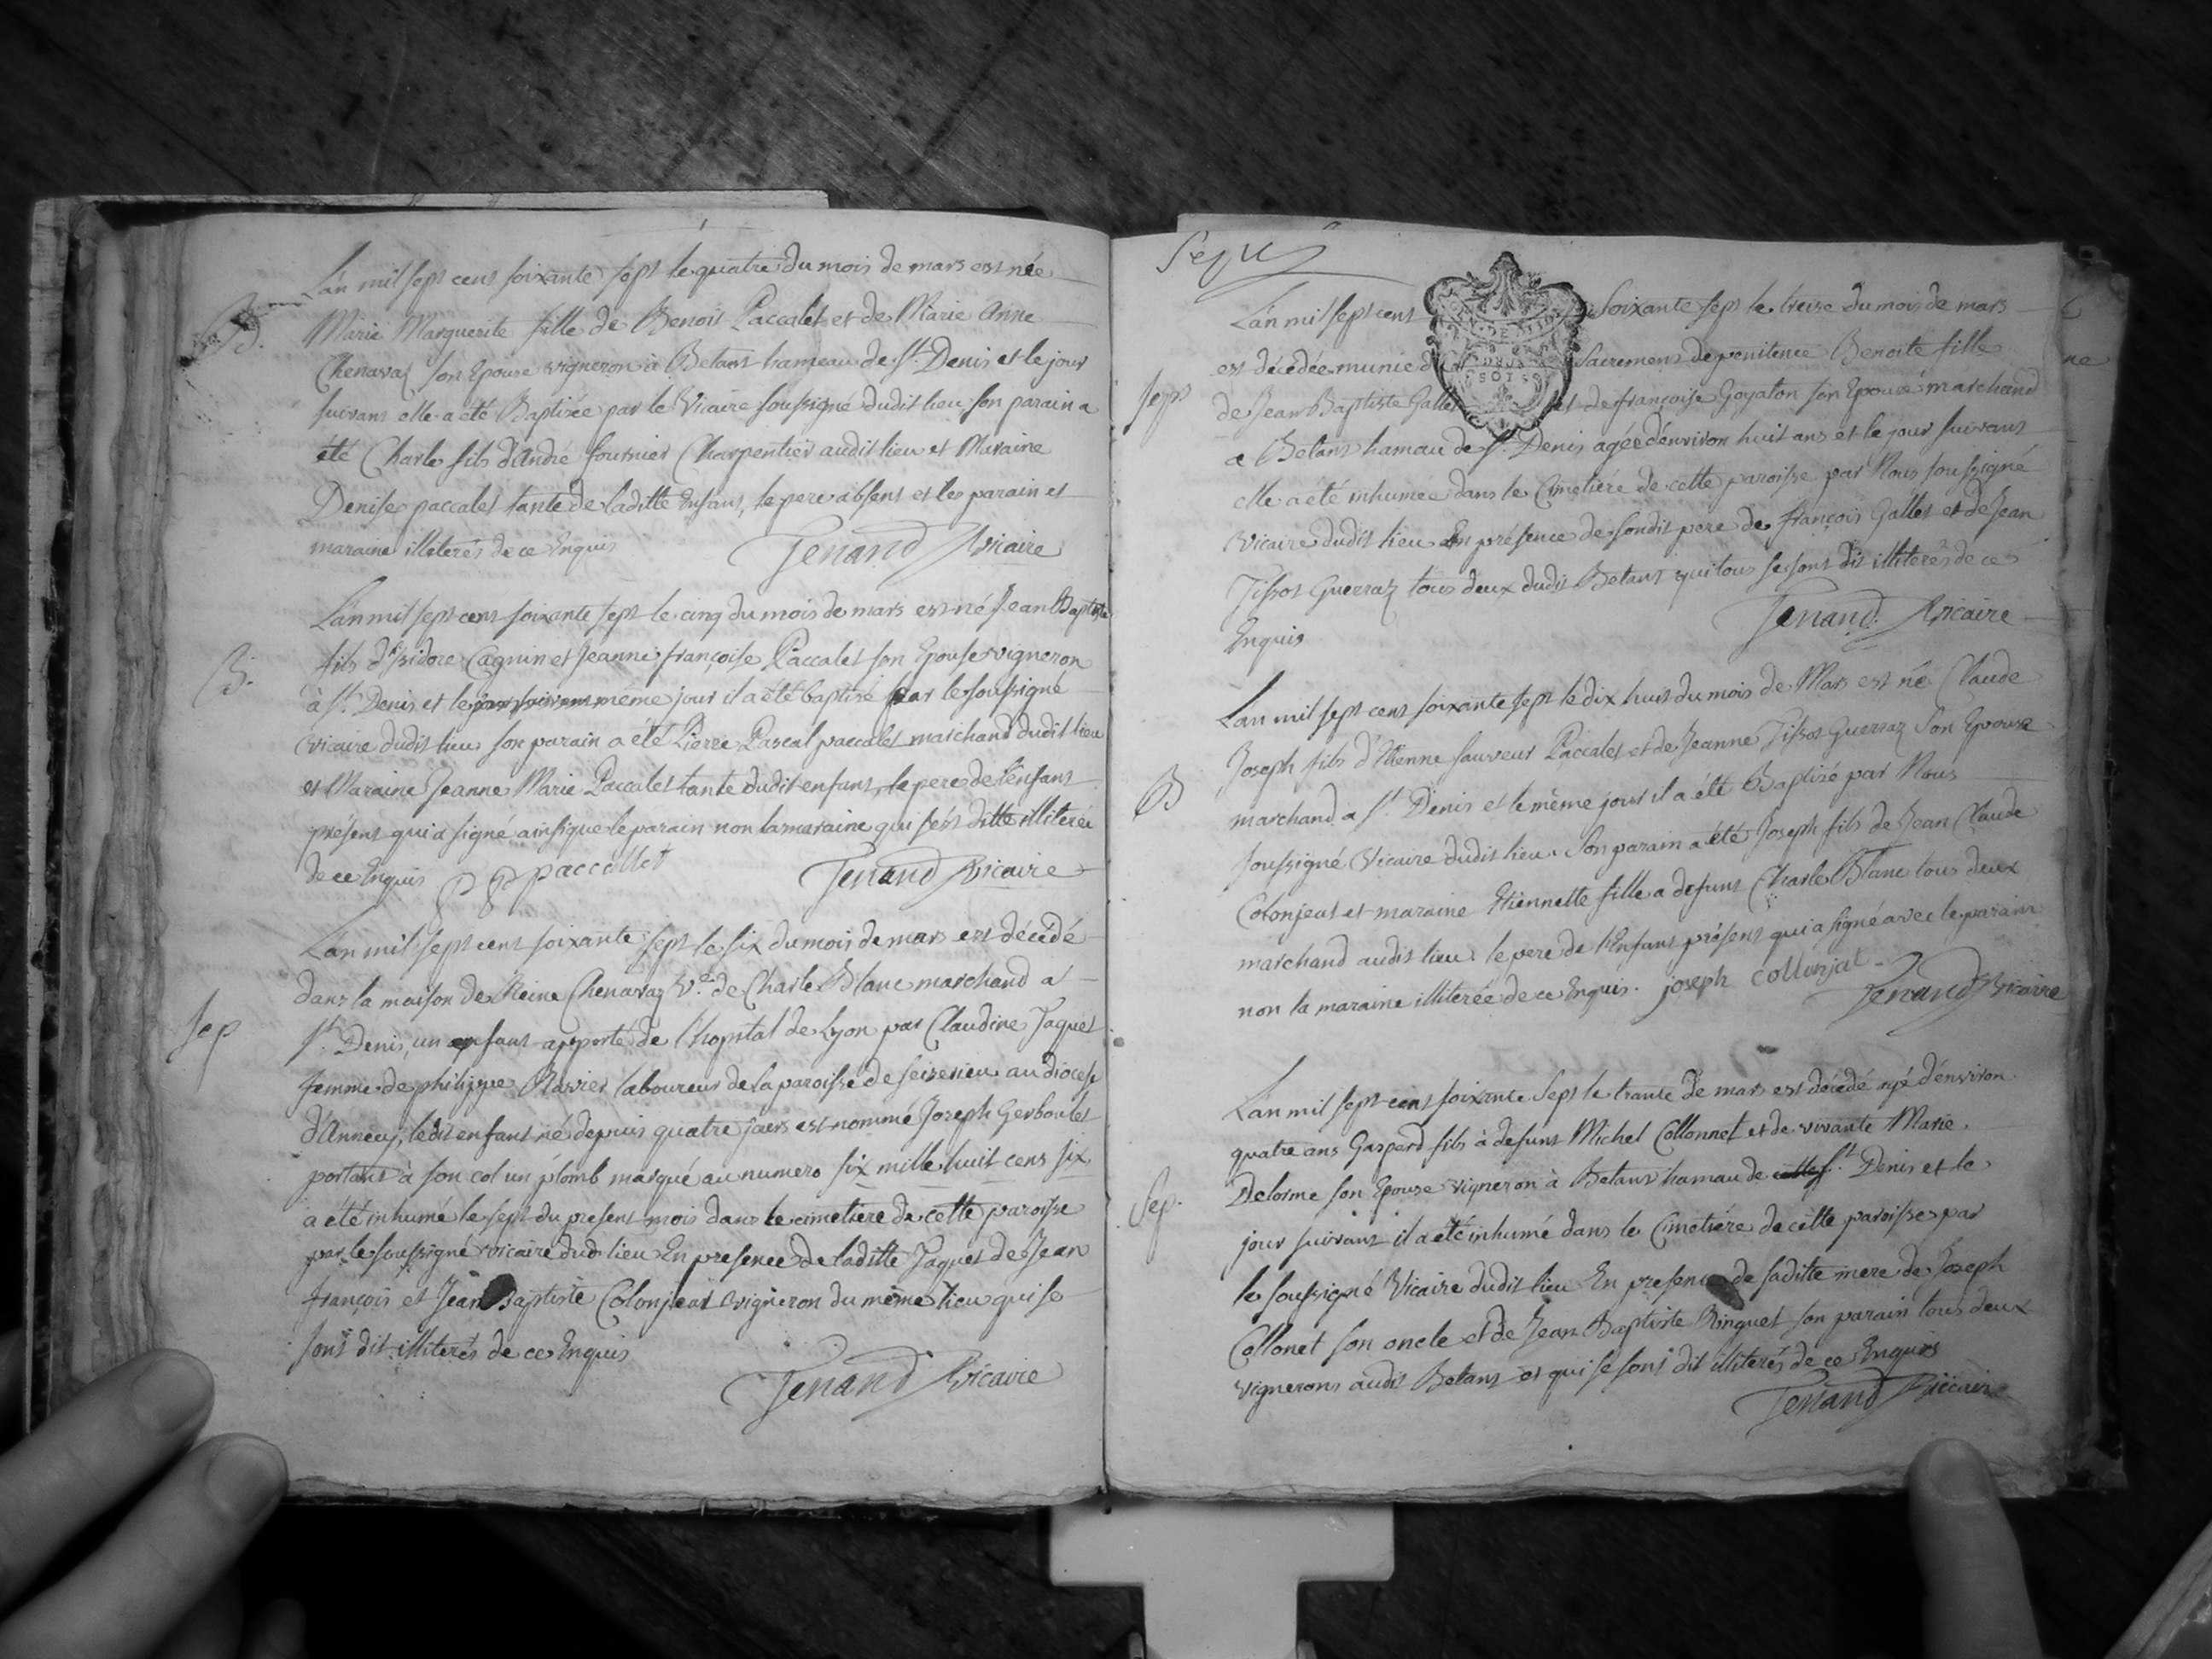 L'an mil sept cent soixante sept le quatre du mois de mars est née
B.
Marie Marguerite fille de Benoit Paccalet et de Marie Anne
Chenavaz son Epouse vigneron à Betant hameau de St. Denis et le jour
suivant elle a été Baptisée par le Vicaire soussigné dudit lieu son parain a
été Charle fils d'André fournier Charpentier audit lieu et Maraine
Denise paccalet tante de laditte Enfant, le pere absent et les parain et
maraine illiterés de ce Enquis
Tenand Vicaire
L'an mil sept cent soixante sept le cinq du mois de mars est né Jean Baptiste
B.
fils d'Isidore Cagnin et Jeanne françoise Paccalet son Epouse vigneron
à St. Denis et le jour suivant même jour il a été baptisé par le soussigné
vicaire dudit lieu son parain a été Pierre Pascal paccalet marchand dudit lieu
et Maraine Jeanne Marie Paccalet tante dudit enfant, le pere de l'enfant
présent qui a signé ainsi que le parain non la maraine qui s'est ditte illiterée
de ce Enquis
P P paccallet
Tenand Vicaire
L'an mil sept cent soixante sept le six du mois de mars est décédé
dans la maison de Reine Chenavaz Ve. de Charle Blanc marchand a
Sep
St. Denis, un enfant apporté de l'hopital de Lyon par Claudine Jaquet
femme de philippe Ravier laboureur de la paroisse de seiserieu au diocese
d'Annecy, ledit enfant né depuis quatre jours est nommé Joseph Gerboulet
portant à son col un plomb marqué au numero six mille huit cens six
a été inhumé le sept du present mois dans le cimetiere de cette paroisse
par le soussigné vicaire dud. lieu En presence de laditte Jaquet de Jean
françois et Jean Baptiste Colonjeat vigneron du même lieu qui se
sont dit illiterés de ce Enquis
Tenand Vicaire
Sept
L'an mil sept cent soixante sept le treize du mois de mars
est décédée munie du sacrement de penitence Benoite fille
Sept
de Jean Baptiste Gallet et de françoise Goyaton son Epouse marchand
a Betant hamau de St. Denis agée d'environ huit ans et le jour suivant
elle a été inhumée dans le Cimetiére de cette paroisse par Nous soussigné
Vicaire dudit lieu En présence de sondit pere de françois Gallet et de Jean
Tissot Guerraz tous deux dudit Betant qui tous se sont dit illiterés de ce
Enquis
Tenand Vicaire
L'an mil sept cent soixante sept le dix huit du mois de Mars est né Claude
Joseph fils d'Etienne sauveur Paccalet et de Jeanne Tissot Guerraz son Epouse
B
marchand a St. Denis et le même jour il a été Baptisé par Nous
soussigné Vicaire dudit lieu. Son parain a été Joseph fils de Jean Claude
Colonjeat et maraine Etiennette fille a defunt Charle Blanc tous deux
marchand audit lieu. le pere de l'Enfant présent qui a signé avec le parain
non la maraine illiterée de ce Enquis.
joseph collonjat
Tenand Vicaire
L'an mil sept cent soixante sept le trante de mars est décédé agé d'environ
quatre ans Gaspard fils à defunt Michel Collonnet et de vivante Marie
Sep.
Delorme son Epouse vigneron à Betant hamau de cette St. Denis et le
jour suivant il a été inhumé dans le Cimetiére de cette paroisse par
le soussigné Vicaire dudit lieu En presence de saditte mere de Joseph
Collonet son oncle et de Jean Baptiste Ringuet son parain tous deux
vignerons audit Betant et qui se sont dit illiterés de ce Enquis
Tenand Vicaire
ne